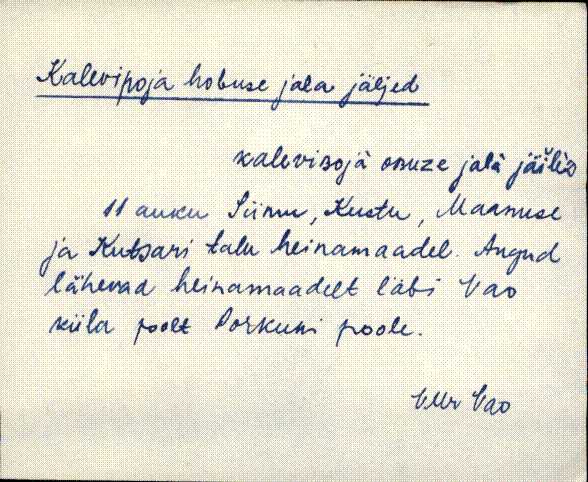 Kalevipoja hobuse jala jäljed
kaleviʙojà oʙuze jalà
11 auku Siimu, Kustu, Maanuse
ja Kutsari talu heinamaadel. Augud
lähevad heinamaadelt läbi Vao
küla poolt Porkuni poole.
VMr Vao